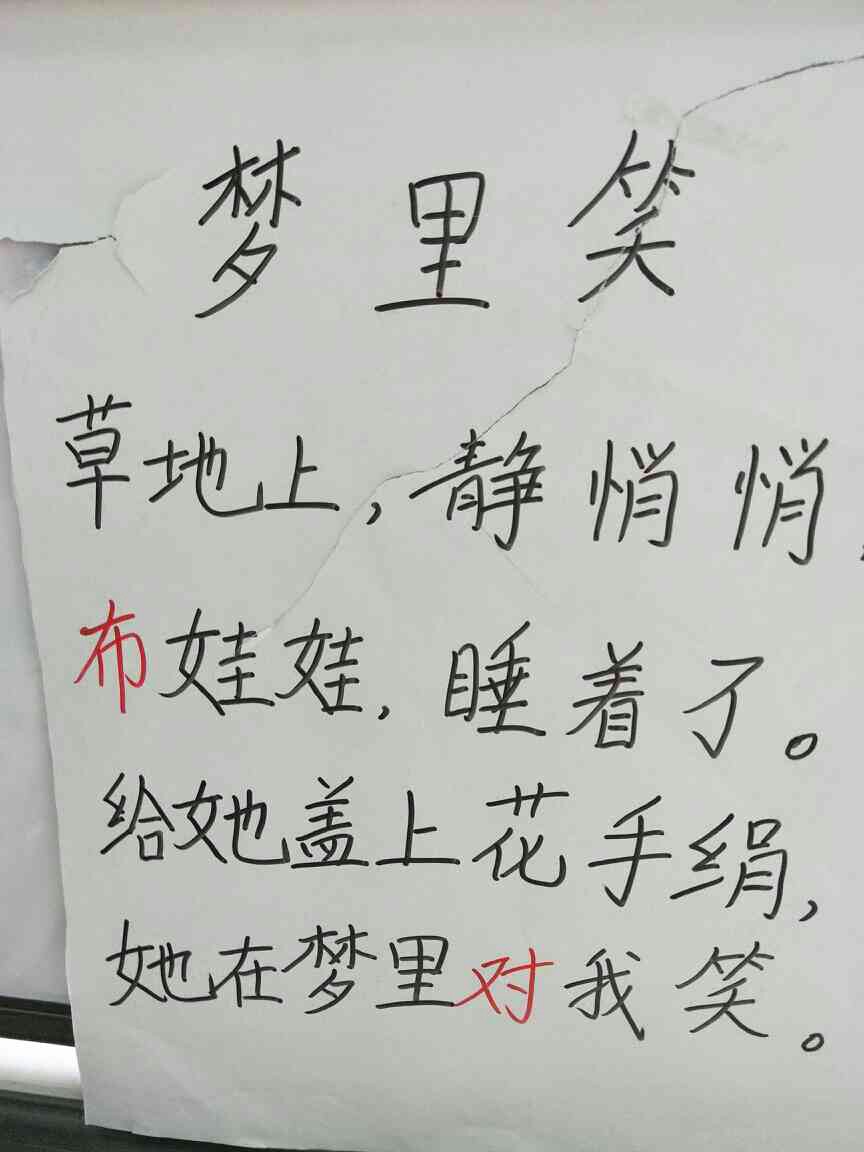 梦里笑
草地上,静悄悄,
布娃娃,睡着了。
给她盖上花手绢,
她在梦里对我笑。